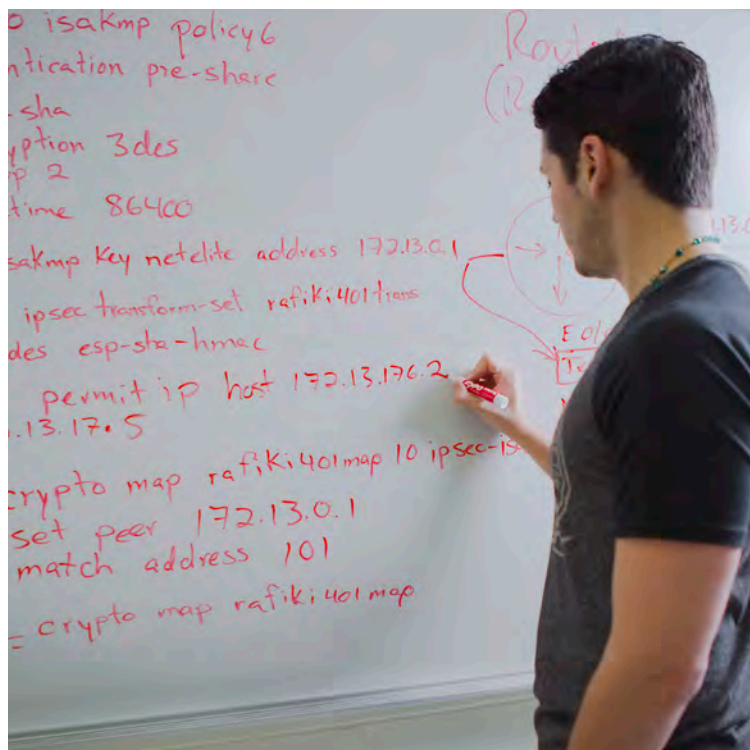 isakmp policy 6
ntication pre-share
-sha
yption 3des
p 2
time 86400
sakmp key netelite address 172.13.0.1
ipsec transform-set rafiki401trans
des esp-sha-hmac
permit ip host 172.13.176.2
.13.17.5
crypto map rafiki401map 10 ipsec-is
set peer 172.13.0.1
match address 101
= crypto map rafiki401map